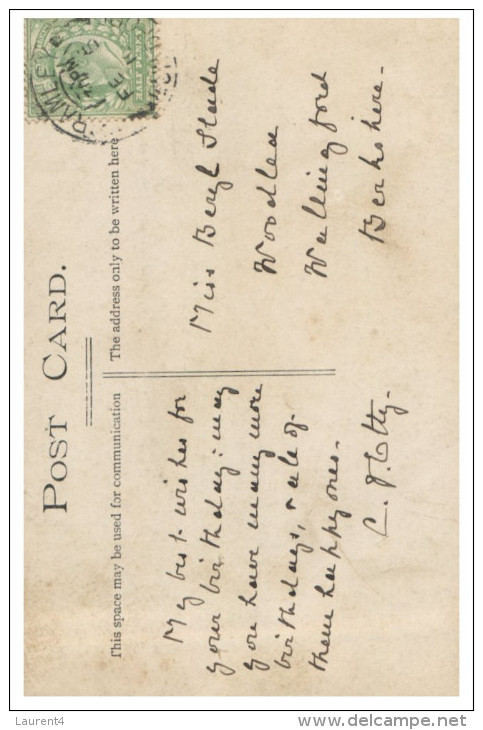 POST CARD.
This space may be used for communication
The address only to be written here
My best wishes for
your birthday: may
you have many more
birthdays, & all of
them happy ones.
Miss Beryl Slade
Woodlea
Wallingford
Berkshire.
HALF PENNY
Laurent4
www.delcampe.net